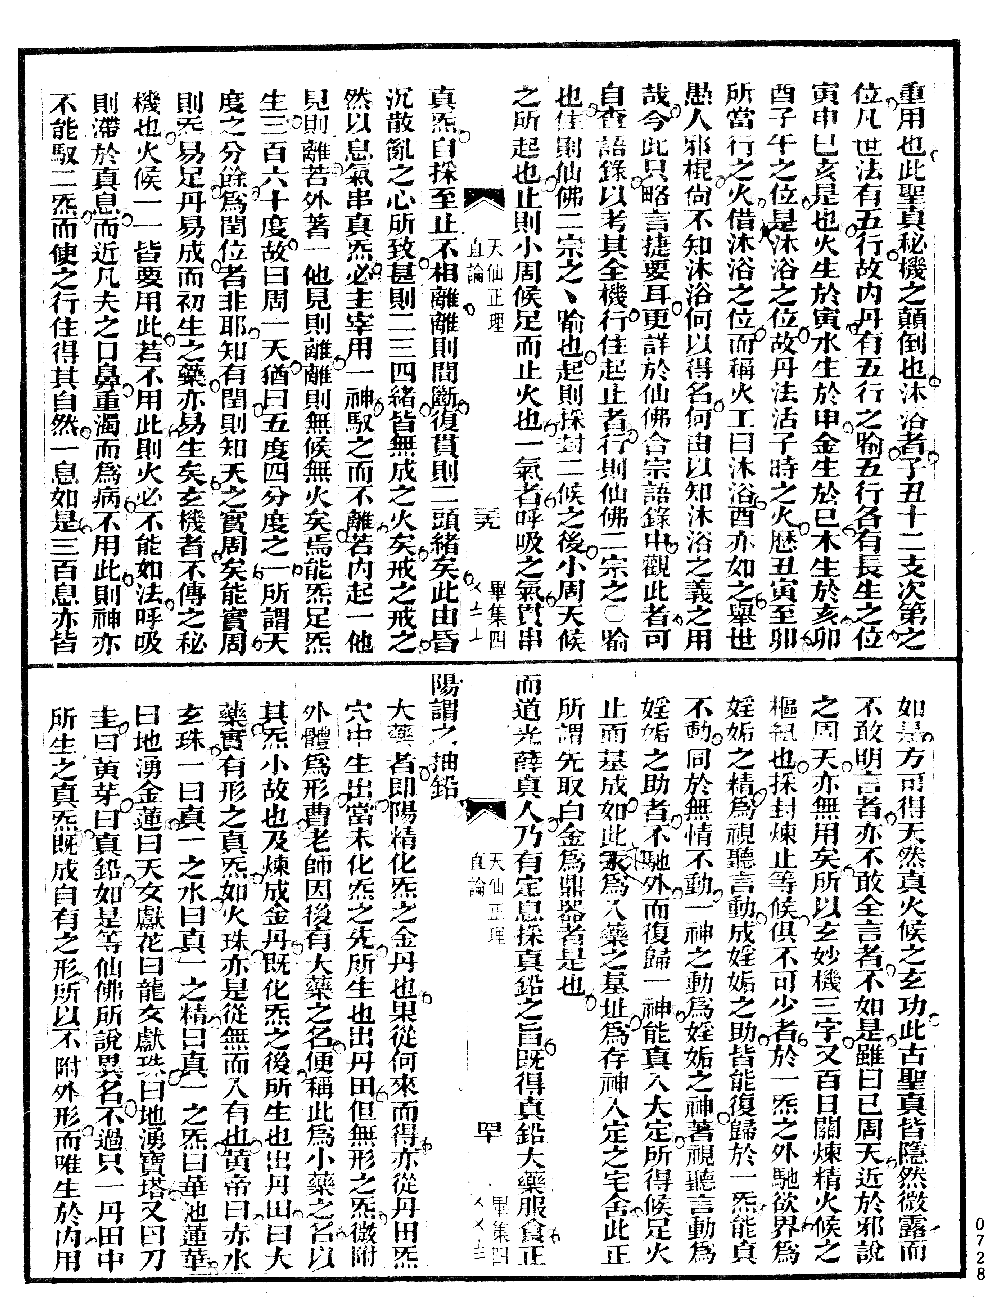 重用也此聖真秘機之顛倒也沐浴者子丑十二支次第之
位凡世法有五行故內丹有五行之喻五行各有長生之位
寅申巳亥是也火生於寅水生於申金生於巳木生於亥卯
酉子午之位是沐浴之位故丹法活子時之火歷丑寅至卯
所當行之火借沐浴之位而稱火工曰沐浴酉亦如之舉世
愚人邪棍尚不知沐浴何以得名何由以知沐浴之義之用
哉今此只略言捷要耳更詳於仙佛合宗語錄中觀此者可
自查語錄以考其全機行住起止者行則仙佛二宗之〇喻
也住則仙佛二宗之、喻也起則採封二候之後小周天候
之所起也止則小周候足而止火也一氣者呼吸之氣貫串
天仙正理
直論
畢集四
真炁自採至止不相離離則間斷復貫則二頭緒矣此由昏
沉散亂之心所致甚則二三四緒皆無成之火矣戒之戒之
然以息氣串真炁必主宰用一神馭之而不離若內起一他
見則離若外著一他見則離離則無候無火矣焉能炁足炁
生三百六十度故曰周一天猶曰五度四分度之一所謂天
度之分餘為閏位者非耶知有閏則知天之實周矣能實周
則炁易足丹易成而初生之藥亦易生矣玄機者不傳之秘
機也火候一一皆要用此若不用此則火必不能如法呼吸
則滯於真息而近凡夫之口鼻重濁而為病不用此則神亦
不能馭二炁而使之行住得其自然一息如是三百息亦皆
如是方可得天然真火候之玄功此古聖真皆隱然微露而
不敢明言者亦不敢全言者不如是雖曰已周天近於邪說
之周天亦無用矣所以玄妙機三字又百日關煉精火候之
樞紐也採封煉止等候俱不可少者於一炁之外馳欲界為
婬姤之精為視聽言動成婬姤之助皆能復歸於一炁能真
不動同於無情不動一神之動為婬姤之神著視聽言動為
婬姤之助者不馳外而復歸一神能真入大定所得候足火
止而基成如此永為入藥之基址為存神入定之宅舍此正
所謂先取白金為鼎器者是也
而道光薛真人乃有定息採真鉛之旨既得真鉛大藥服食正
天仙正理
直論
畢集四
陽謂之抽鉛
大藥者即陽精化炁之金丹也果從何來而得亦從丹田炁
穴中生出當未化炁之先所生也出丹田但無形之炁微附
外體為形曹老師因後有大藥之名便稱此為小藥之名以
其炁小故也及煉成金丹既化炁之後所生也出丹田曰大
藥實有形之真炁如火珠亦是從無而入有也黃帝曰赤水
玄珠一曰真一之水曰真一之精曰真一之炁曰華池蓮華
曰地湧金蓮曰天女獻花曰龍女獻珠曰地湧寶塔又曰刀
圭曰黃芽曰真鉛如是等仙佛所說異名不過只一丹田中
所生之真炁既成自有之形所以不附外形而唯生於內用
0728